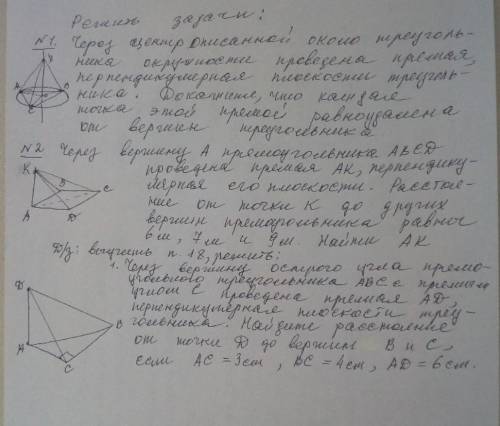 Решить задачи:
№1. Через центр описанной около треуголь-
ника окружности проведена прямая,
перпендикулярная плоскости треуголь-
ника. Докажите, что каждая
точка этой прямой равноудалена
от вершин треугольника
№2 Через вершину А прямоугольника ABCD
проведена прямая АК, перпендику-
лярная его плоскости. Расстоя-
ние от точки К до других
вершин прямоугольника равно
6м, 7м и 9м. Найти АК
Д/з: выучить п. 18, решить:
1. Через вершину острого угла прямо-
угольного треугольника ABC с прямым
углом С проведена прямая AD,
перпендикулярная плоскости треу-
гольника. Найдите расстояние
от точки Д до вершин В и С,
если AC = 3cm, BC = 4cm, AD = 6cm.
К
В
С
А
D
Д
А
В
С